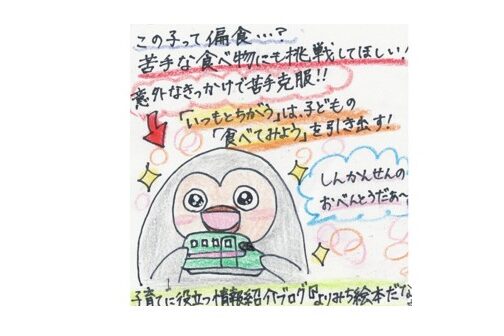 この子って偏食…?
苦手な食べ物にも挑戦してほしい!
意外なきっかけで苦手克服!!
「いつもとちがう」は、子どもの
「食べてみよう」を引き出す!
しんかんせんの
おべんとうだぁ〜
子育てに役立つ情報紹介ブログ『よりみち絵本だな